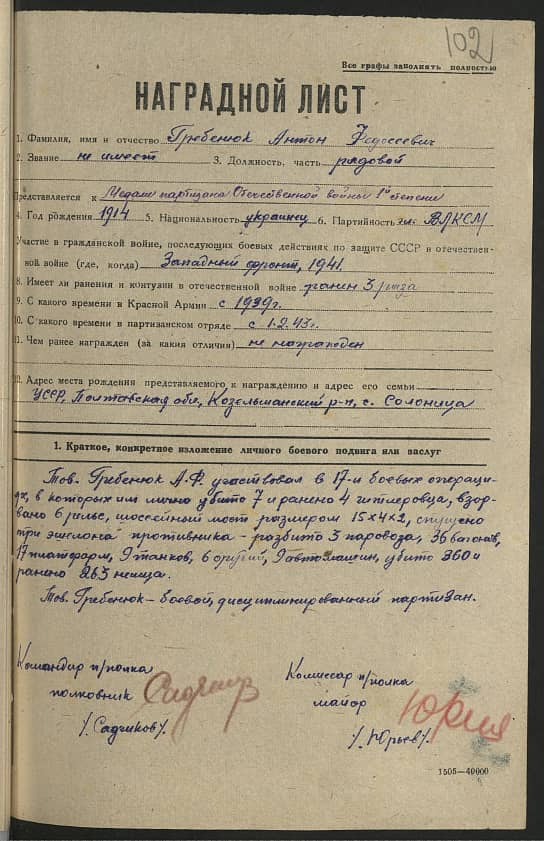 102
Все графы заполнять полностью
НАГРАДНОЙ ЛИСТ
1. Фамилия, имя и отчество Гребенюк Антон Федосеевич
2. Звание не имеет 3. Должность, часть рядовой
Представляется к Медали партизана Отечественной войны 1й степени
4. Год рождения 1914 5. Национальность украинец 6. Партийность чл. ВЛКСМ
Участие в гражданской войне, последующих боевых действиях по защите СССР и отечествен-
ной войне (где, когда) Западный фронт, 1941.
8. Имеет ли ранения и контузии в отечественной войне ранен 3 раза
9. С какого времени в Красной Армии с 1939 г.
10. С какого времени в партизанском отряде с 1.2.43 г.
11. Чем ранее награжден (за какия отличия) не награжден
12. Адрес места рождения представляемого к награждению и адрес его семьи
УССР, Полтавская обл, Козельманский р-н, с. Солоница
1. Краткое, конкретное изложение личного боевого подвига или заслуг
Тов. Гребенюк А.Ф. участвовал в 17-и боевых операци-
ях, в которых им лично убито 7 и ранено 4 гитлеровца, взор-
вано 6 рельс, шоссейный мост размером 15х4х2, спущено
три эшелона противника - разбито 3 паровоза, 36 вагонов,
17 платформ, 9 танков, 6 орудий, 9 автомашин, убито 360 и
ранено 265 немца.
Тов. Гребенюк - боевой, дисциплинированный партизан.
Командир п/полка
полковник Садчиков
/Садчиков/.
Комиссар п/полка
майор Юрьев
/Юрьев/.
1505—40000